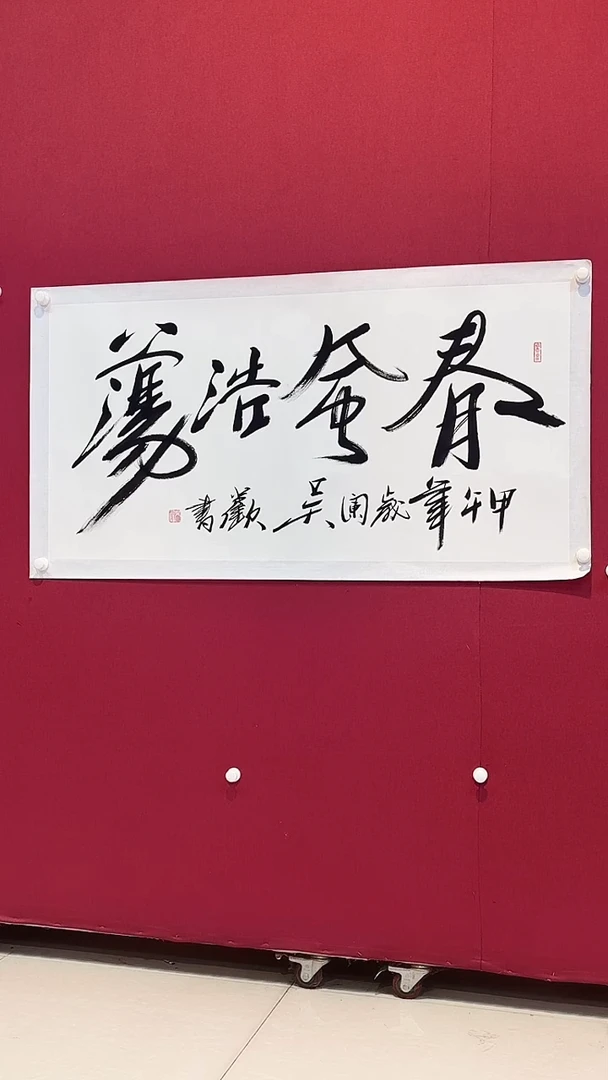 春風浩蕩
甲午年歲闌吳歡書